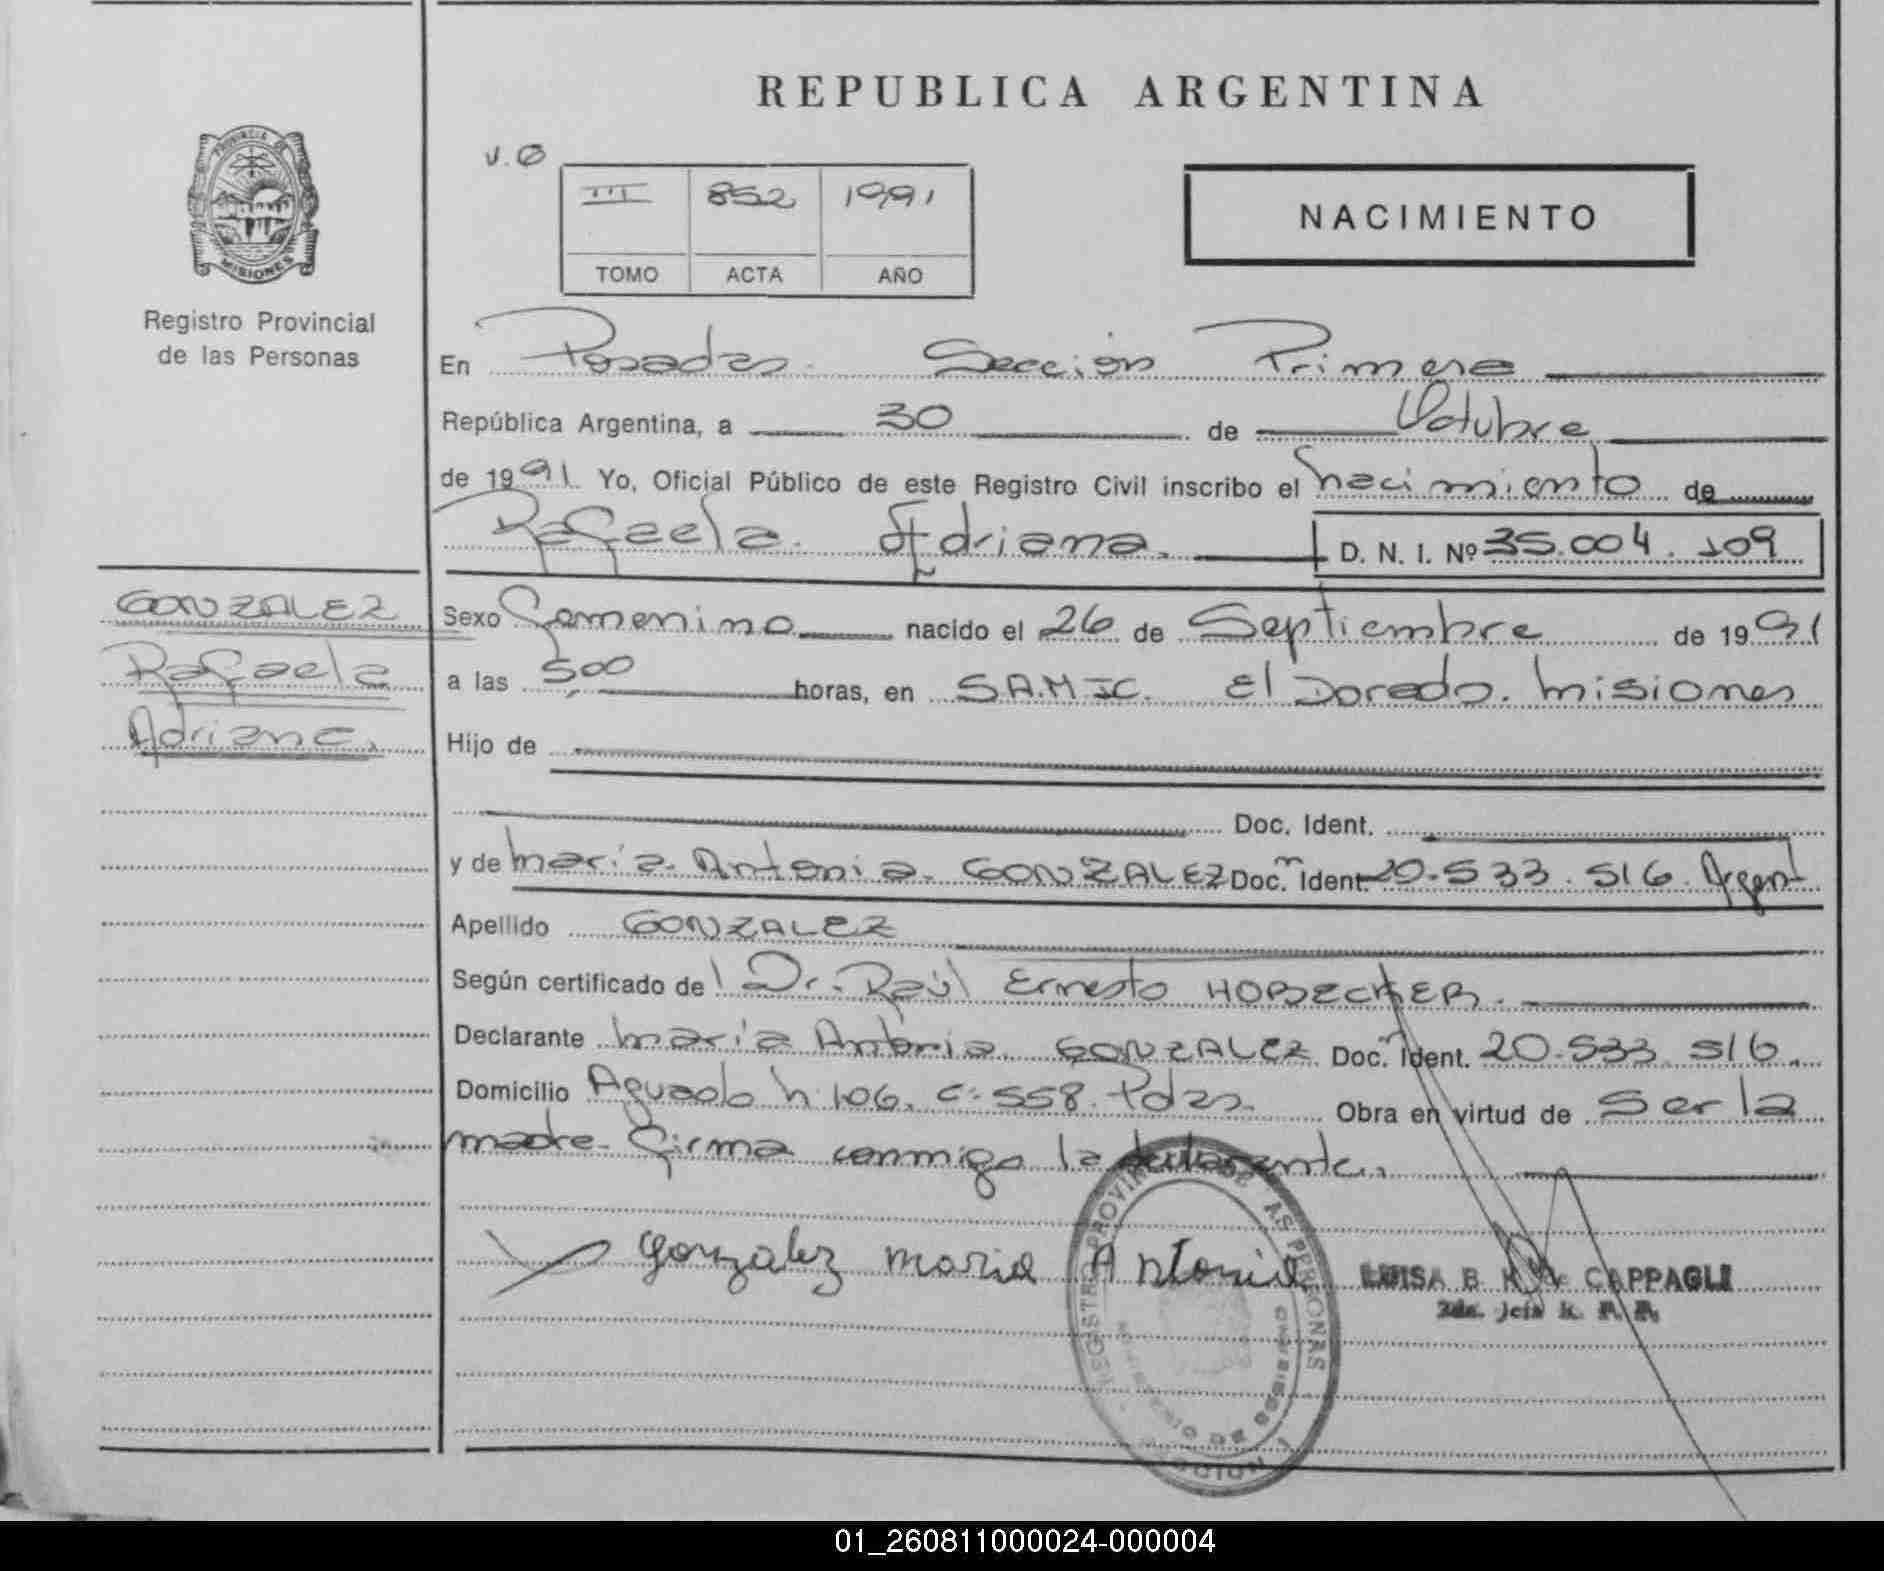 REPUBLICA ARGENTINA
PROVINCIA DE
MISIONES
Registro Provincial
de las Personas
V.O
III 852 1991
TOMO ACTA AÑO
NACIMIENTO
En Posadas. Sección Primera
República Argentina, a 30 de Octubre
de 1991. Yo, Oficial Público de este Registro Civil inscribo el nacimiento de
Rafaela Adriana. D. N. I. Nº 35.004.109
GONZALEZ
Rafaela
Adriana.
Sexo Femenino nacido el 26 de Septiembre de 1991
a las 5,00 horas, en S.A.M.I.C. El Dorado. Misiones
Hijo de
Doc. Ident.
y de María Antonia GONZALEZ Doc. Ident. 20.533.516. Argent
Apellido GONZALEZ
Según certificado de Dr. Raúl Ernesto HOBECKER.
Declarante María Antonia GONZALEZ Doc. Ident. 20.533.516.
Domicilio Aguado n 106. c: 558. Pdas. Obra en virtud de Ser la
madre. firma conmigo la declarante.
Gonzalez Maria Antonia
LUISA B de CAPPAGLI
REGISTRO PROVINCIAL DE LAS PERSONAS
01_260811000024-000004